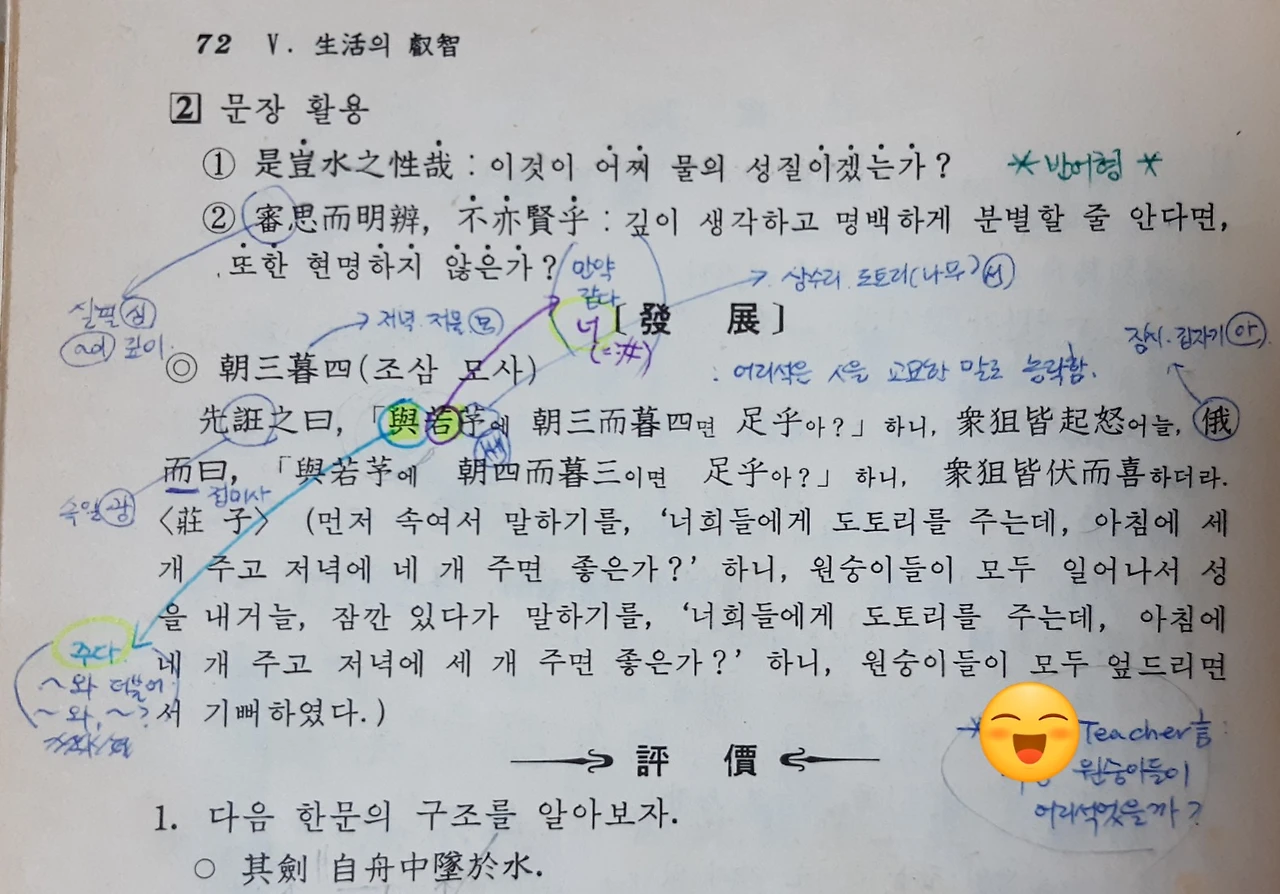 72 Ⅴ. 生活의 叡智
2 문장 활용
① 是豈水之性哉 : 이것이 어찌 물의 성질이겠는가? * 반어형 *
② 審思而明辨, 不亦賢乎 : 깊이 생각하고 명백하게 분별할 줄 안다면,
또한 현명하지 않은가?
만약
같다
너
상수리 도토리(나무) 서
살필 심
(ad) 깊이
저녁. 저물 모
[發 展]
잠시. 갑자기 아
◎ 朝三暮四(조삼 모사)
: 어리석은 人을 교묘한 말로 농락함.
先誑之曰, 「與若芧에 朝三而暮四면 足乎아?」 하니, 衆狙皆起怒어늘, 俄
而曰, 「與若芧에 朝四而暮三이면 足乎아?」 하니, 衆狙皆伏而喜하더라.
속일 광
접미사
〈莊子〉 (먼저 속여서 말하기를, ‘너희들에게 도토리를 주는데, 아침에 세
개 주고 저녁에 네 개 주면 좋은가?’ 하니, 원숭이들이 모두 일어나서 성
을 내거늘, 잠깐 있다가 말하기를, ‘너희들에게 도토리를 주는데, 아침에
네 개 주고 저녁에 세 개 주면 좋은가?’ 하니, 원숭이들이 모두 엎드리면
서 기뻐하였다.)
주다
~와 더불어
~와, ~?
Teacher言:
원숭이들이
어리석었을까?
評 價
1. 다음 한문의 구조를 알아보자.
○ 其劍 自舟中墜於水.